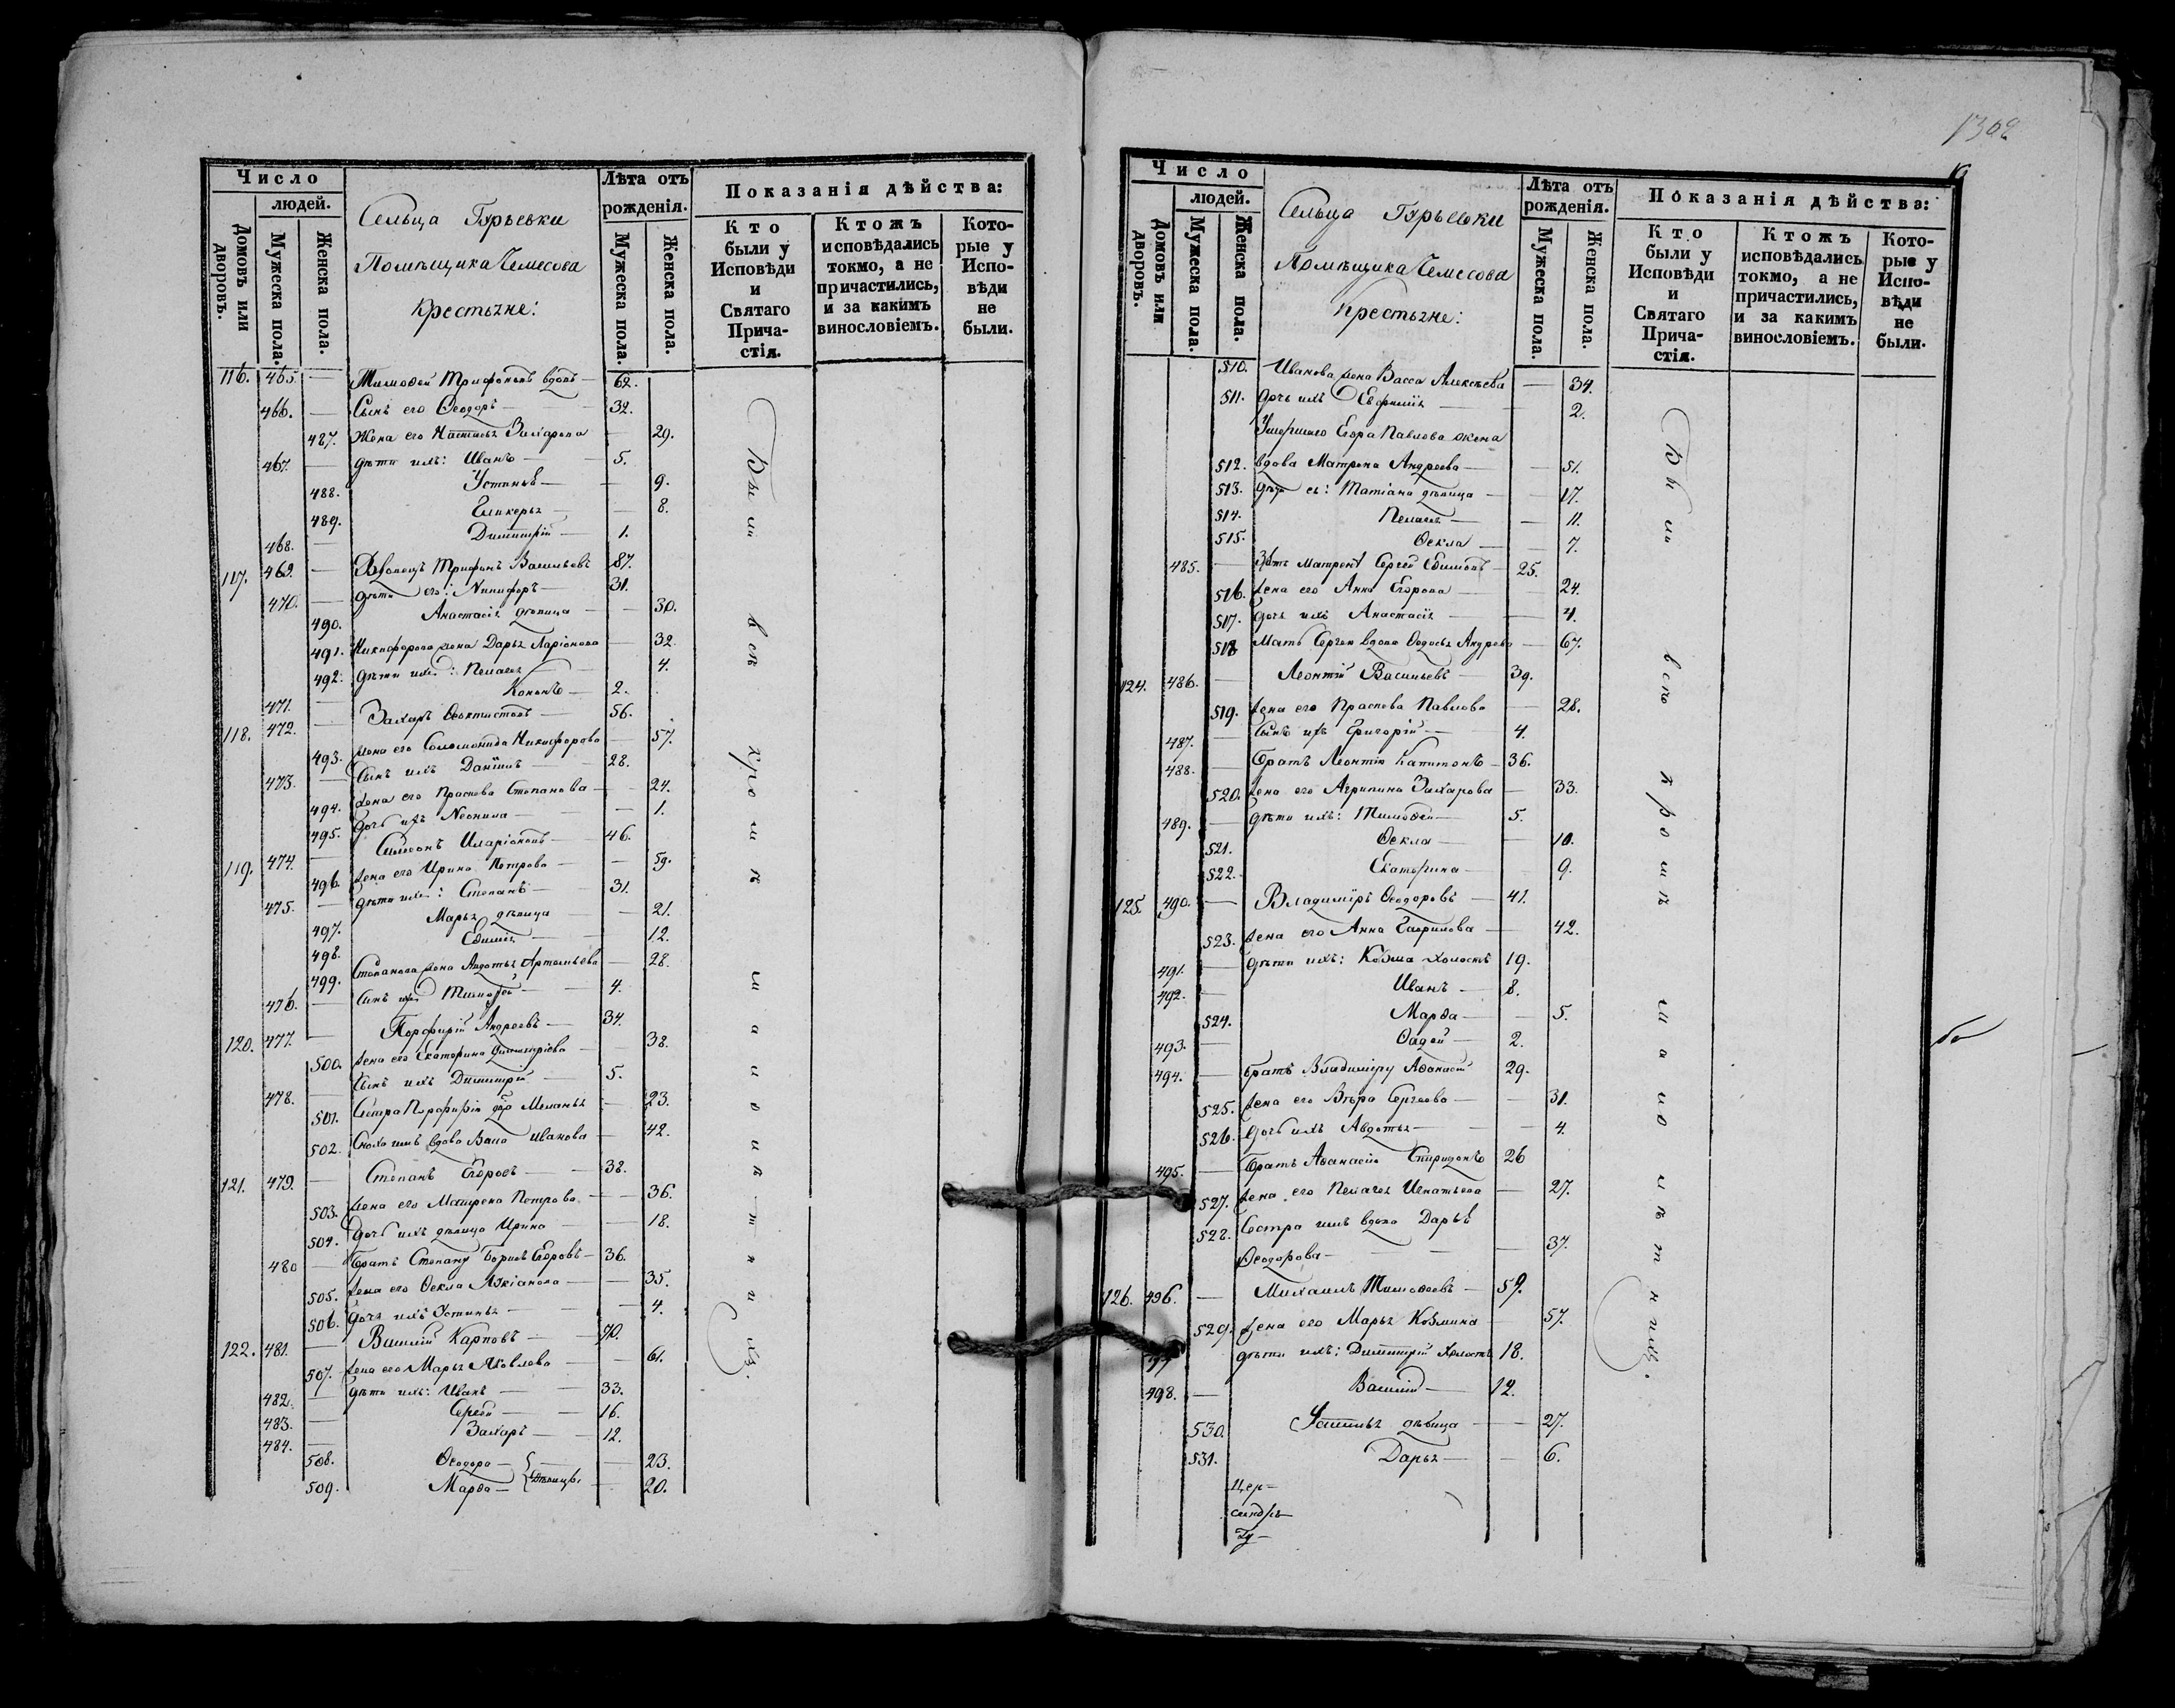 Число
людей.
Домовъ или дворовъ.
Мужеска пола.
Женска пола.
Сельца Гурьевки
Помѣщика Чемесова
Крестьяне:
Лѣта отъ рожденія.
Мужеска пола.
Женска пола.
Показанія дѣйства:
Кто были у Исповѣди и Святаго Причастія.
Ктожъ исповѣдались токмо, а не причастились, и за какимъ винословіемъ.
Которые у Исповѣди не были.
116. 465. — Тимоѳей Трифоновъ вдовъ — 62.
466. — Сынъ его Ѳеодоръ — 32.
487. Жена его Настасья Захарова — 29.
467. — дѣти ихъ: Иванъ — 5.
488. Устинья — 9.
489. Гликерья — 8.
468. — Димитрій — 1.
117. 469. — Вдовецъ Трифонъ Васильевъ 87.
470. — дѣти его: Никифоръ — 31.
490. Анастасія дѣвица — 30.
491. Никифорова жена Дарья Ларіонова — 32.
492. дѣти ихъ: Пелагея — 4.
471. — Кононъ — 2.
118. 472. — Захаръ Ѳеоктистовъ — 56.
493. жена его Соломонида Никифорова — 57.
473. — Сынъ ихъ Даніилъ — 28.
494. жена его Прасковья Степанова — 24.
495. дочь ихъ Неонила — 1.
119. 474. — Симеонъ Иларіоновъ — 46.
496. жена его Ирина Петрова — 59.
475. — дѣти ихъ: Степанъ — 31.
497. Марья дѣвица — 21.
498. Евдокія — 12.
499. Степанова жена Авдотья Артемьева — 28.
476. — Сынъ ихъ Тимоѳей — 4.
120. 477. — Порфирій Андреевъ — 34.
500. жена его Екатерина Димитріева — 38.
478. — Сынъ ихъ Димитрій — 5.
501. Сестра Порфирія Меланья — 23.
502. Сноха имъ вдова Васса Иванова — 42.
121. 479. — Степанъ Егоровъ — 38.
503. жена его Матрена Петрова — 36.
504. дочь ихъ дѣвица Ирина — 18.
480 — Братъ Степану Борисъ Егоровъ — 36.
505. жена его Ѳекла Лукіанова — 35.
506. дочь ихъ Устинья — 4.
122. 481. — Василій Карповъ — 70.
507. жена его Марья Яковлева — 61.
482. — дѣти ихъ: Иванъ — 33.
483. — Сергей — 16.
484. — Захаръ — 12.
508. Ѳеодора — 23.
509. Марѳа — дѣвицы 20.
Были всѣ кромѣ малолѣтнихъ.
1302
Число
людей.
Домовъ или дворовъ.
Мужеска пола.
Женска пола.
Сельца Гурьевки
Помѣщика Чемесова
Крестьяне:
Лѣта отъ рожденія.
Мужеска пола.
Женска пола.
Показанія дѣйства:
Кто были у Исповѣди и Святаго Причастія.
Ктожъ исповѣдались токмо, а не причастились, и за какимъ винословіемъ.
Которые у Исповѣди не были.
510. Иванова жена Васса Алексѣева — 34.
511. дочь ихъ Евфимія — 2.
Умершаго Егора Павлова жена
512. вдова Матрена Андреева — 51.
513. дѣти ея: Татіана дѣвица — 17.
514. Пелагея — 11.
515. Ѳекла — 7.
485. — Зять Матрены Сергей Евдимовъ — 25.
516. жена его Анна Егорова — 24.
517. дочь ихъ Анастасія — 4.
518. Мать Сергея вдова Ѳедосья Андреева — 67.
124. 486. — Леонтій Васильевъ — 39.
519. жена его Прасковья Павлова — 28.
487. — Сынъ ихъ Григорій — 4.
488. — Братъ Леонтія Капитонъ — 36.
520. жена его Агрипина Захарова — 33.
489. — дѣти ихъ: Тимоѳей — 5.
521. Ѳекла — 10.
522. Екатерина — 9.
125. 490. — Владиміръ Ѳеодоровъ — 41.
523. жена его Анна Гаврилова — 42.
491. — дѣти ихъ: Козма холостъ 19.
492. — Иванъ — 8.
524. Марѳа — 5.
493. — Ѳадей — 2.
494. — братъ Владиміру Аѳанасій 29.
525. жена его Вѣра Сергеева — 31.
526. дочь ихъ Авдотья — 4.
495. — братъ Аѳанасія Спиридонъ 26
527. жена его Пелагея Игнатьева — 27.
528. Сестра имъ вдова Дарья
Ѳеодорова — 37.
126. 496. — Михаилъ Тимоѳеевъ — 59.
529. жена его Марья Козмина — 57.
497 дѣти ихъ: Димитрій холостъ 18.
498. — Василій — 12.
530. Устинья дѣвица — 27.
531. Дарья — 6.
Были всѣ кромѣ малолѣтнихъ.